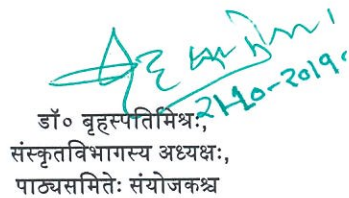 21-10-2019
डॉ० बृहस्पतिमिश्रः,
संस्कृतविभागस्य अध्यक्षः,
पाठ्यसमितेः संयोजकश्च